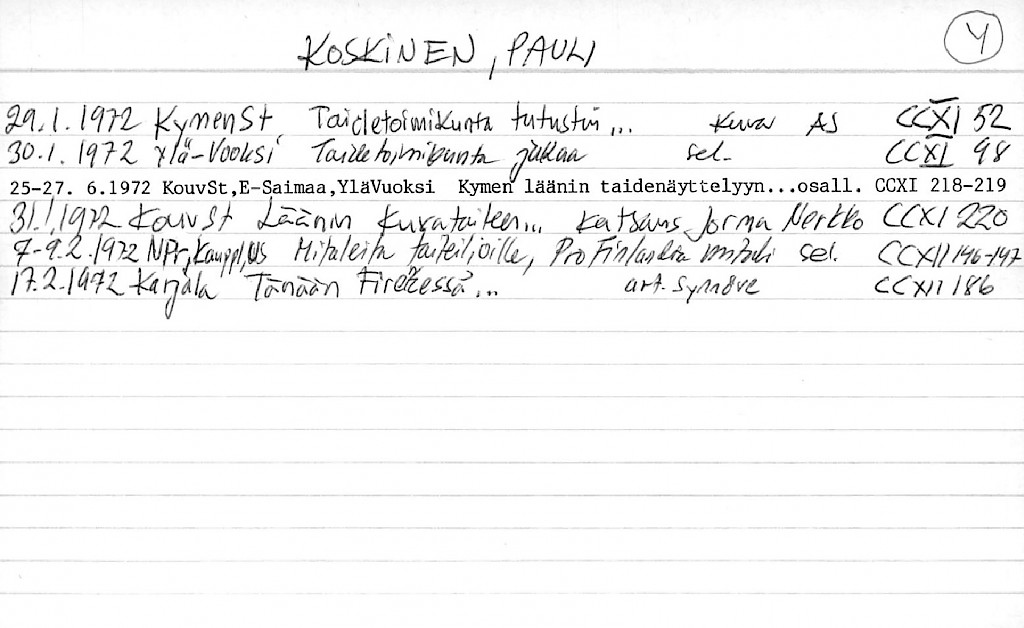 KOSKINEN, PAULI 4
29.1.1972 KymenSt. Taidetoimikunta tutustui... kuva AS CCXI 52
30.1.1972 Ylä-Vuoksi Taidetoimikunta jakaa sel. CCXI 98
25-27. 6.1972 KouvSt,E-Saimaa,YläVuoksi Kymen läänin taidenäyttelyyn...osall. CCXI 218-219
31.1.1972 KouvSt Läänin kuvataiteen... katsaus Jorma Nerkko CCXI 220
7-9.2.1972 NPr, Kauppl, US Mitaleita taiteilijoille, Pro Finlandia mitali sel. CCXII 146-147
17.2.1972 Karjala Tänään Firenzessä... art. Synnöve CCXII 186